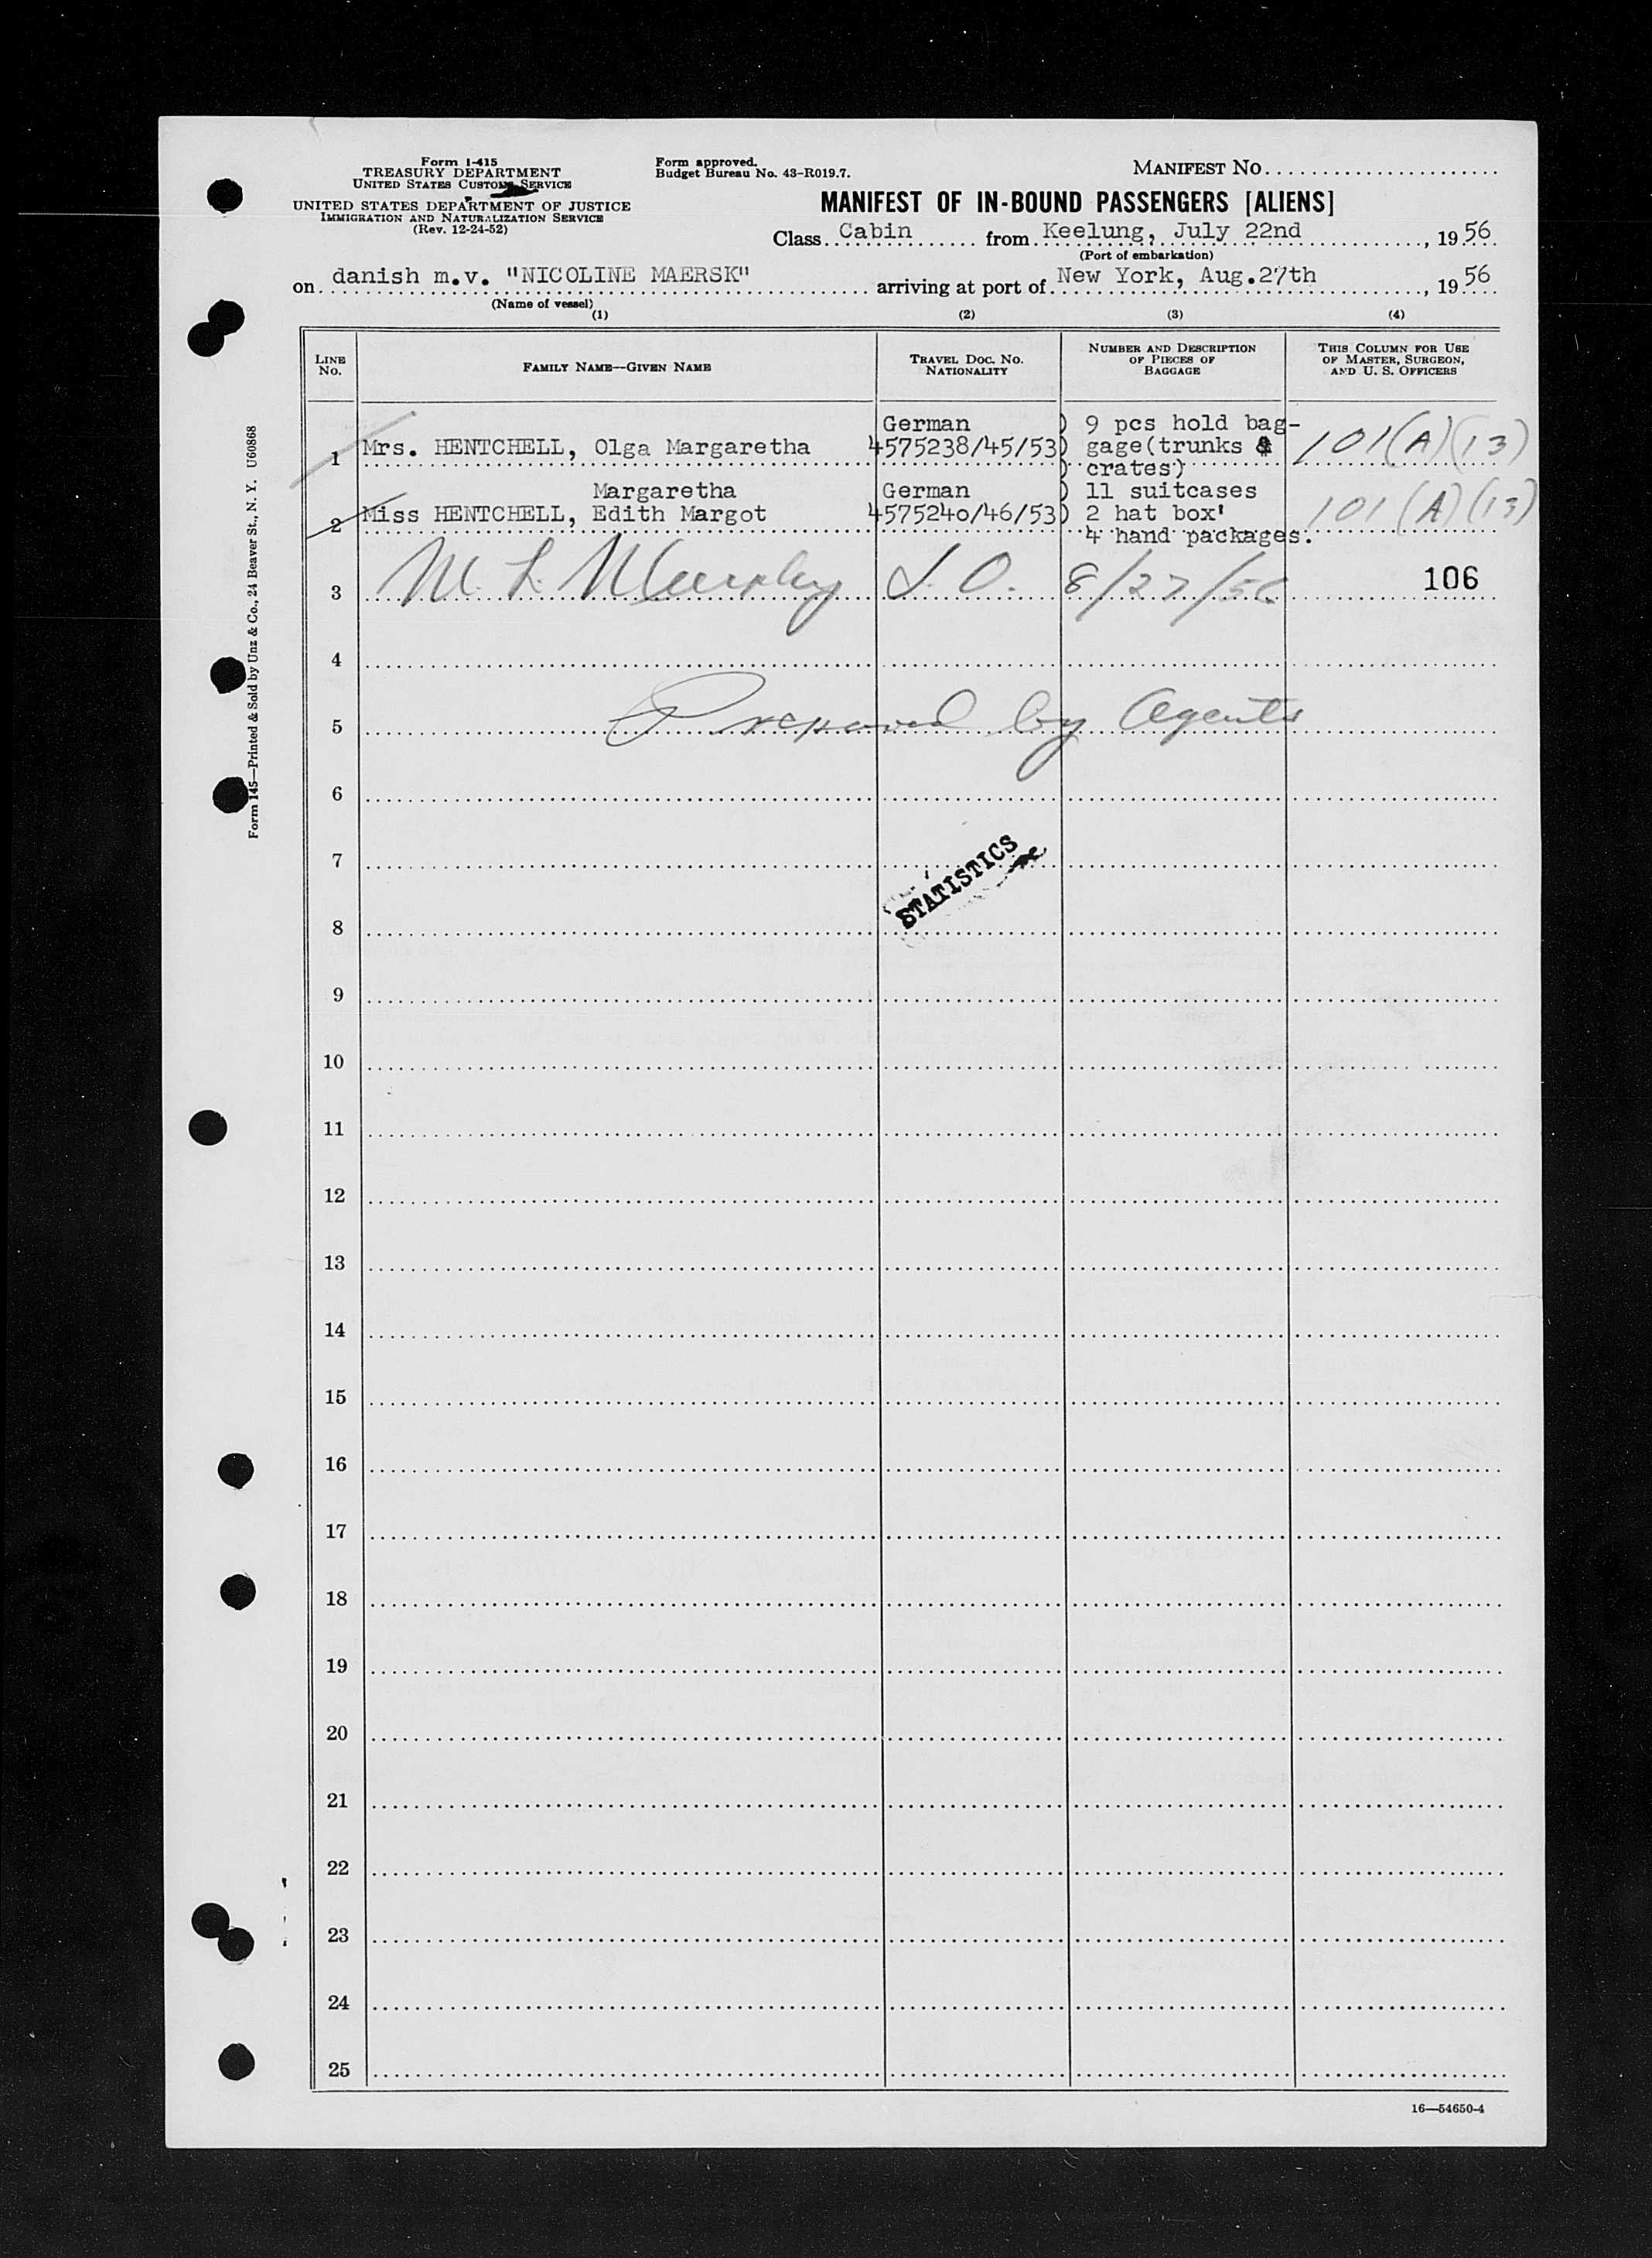 Form I-415
TREASURY DEPARTMENT
UNITED STATES CUSTOMS SERVICE
UNITED STATES DEPARTMENT OF JUSTICE
IMMIGRATION AND NATURALIZATION SERVICE
(Rev. 12-24-52)
Form approved.
Budget Bureau No. 43-R019.7.
MANIFEST NO.
MANIFEST OF IN-BOUND PASSENGERS [ALIENS]
Class Cabin from Keelung, July 22nd, 1956
(Port of embarkation)
on danish m.v. "NICOLINE MAERSK" arriving at port of New York, Aug.27th, 1956
(Name of vessel)
(1) (2) (3) (4)
LINE NO.
FAMILY NAME—GIVEN NAME
TRAVEL DOC. NO.
NATIONALITY
NUMBER AND DESCRIPTION
OF PIECES OF
BAGGAGE
THIS COLUMN FOR USE
OF MASTER, SURGEON,
AND U. S. OFFICERS
German ) 9 pcs hold bag-
1 Mrs. HENTCHELL, Olga Margaretha 4575238/45/53) gage(trunks & 101(A)(13)
) crates)
Margaretha German ) 11 suitcases
2 Miss HENTCHELL, Edith Margot 4575240/46/53) 2 hat box' 101(A)(13)
4 hand packages.
3 M. L. Murphy I.O. 8/27/56 106
4
5 Prepared by Agents
6
7
STATISTICS
8
9
10
11
12
13
14
15
16
17
18
19
20
21
22
23
24
25
16—54650-4
Form 145—Printed & Sold by Unz & Co., 24 Beaver St., N. Y. U60868